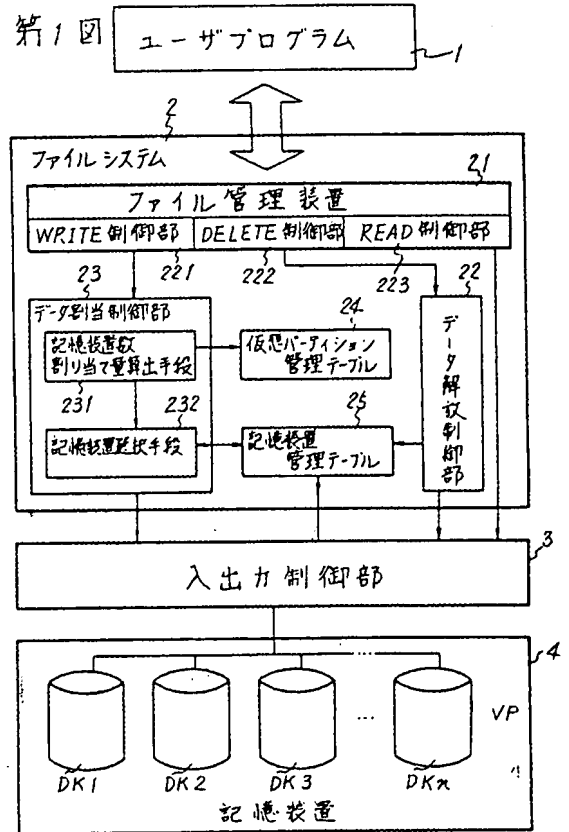 第1図
ユーザプログラム
1
2
ファイルシステム
21
ファイル管理装置
WRITE制御部
DELETE制御部
READ制御部
221
222
223
23
データ割当制御部
記憶装置数
割り当て量算出手段
231
232
記憶装置選択手段
24
仮想パーティション
管理テーブル
25
記憶装置
管理テーブル
22
データ解放制御部
3
入出力制御部
4
VP
DK1
DK2
DK3
...
DKn
記憶装置